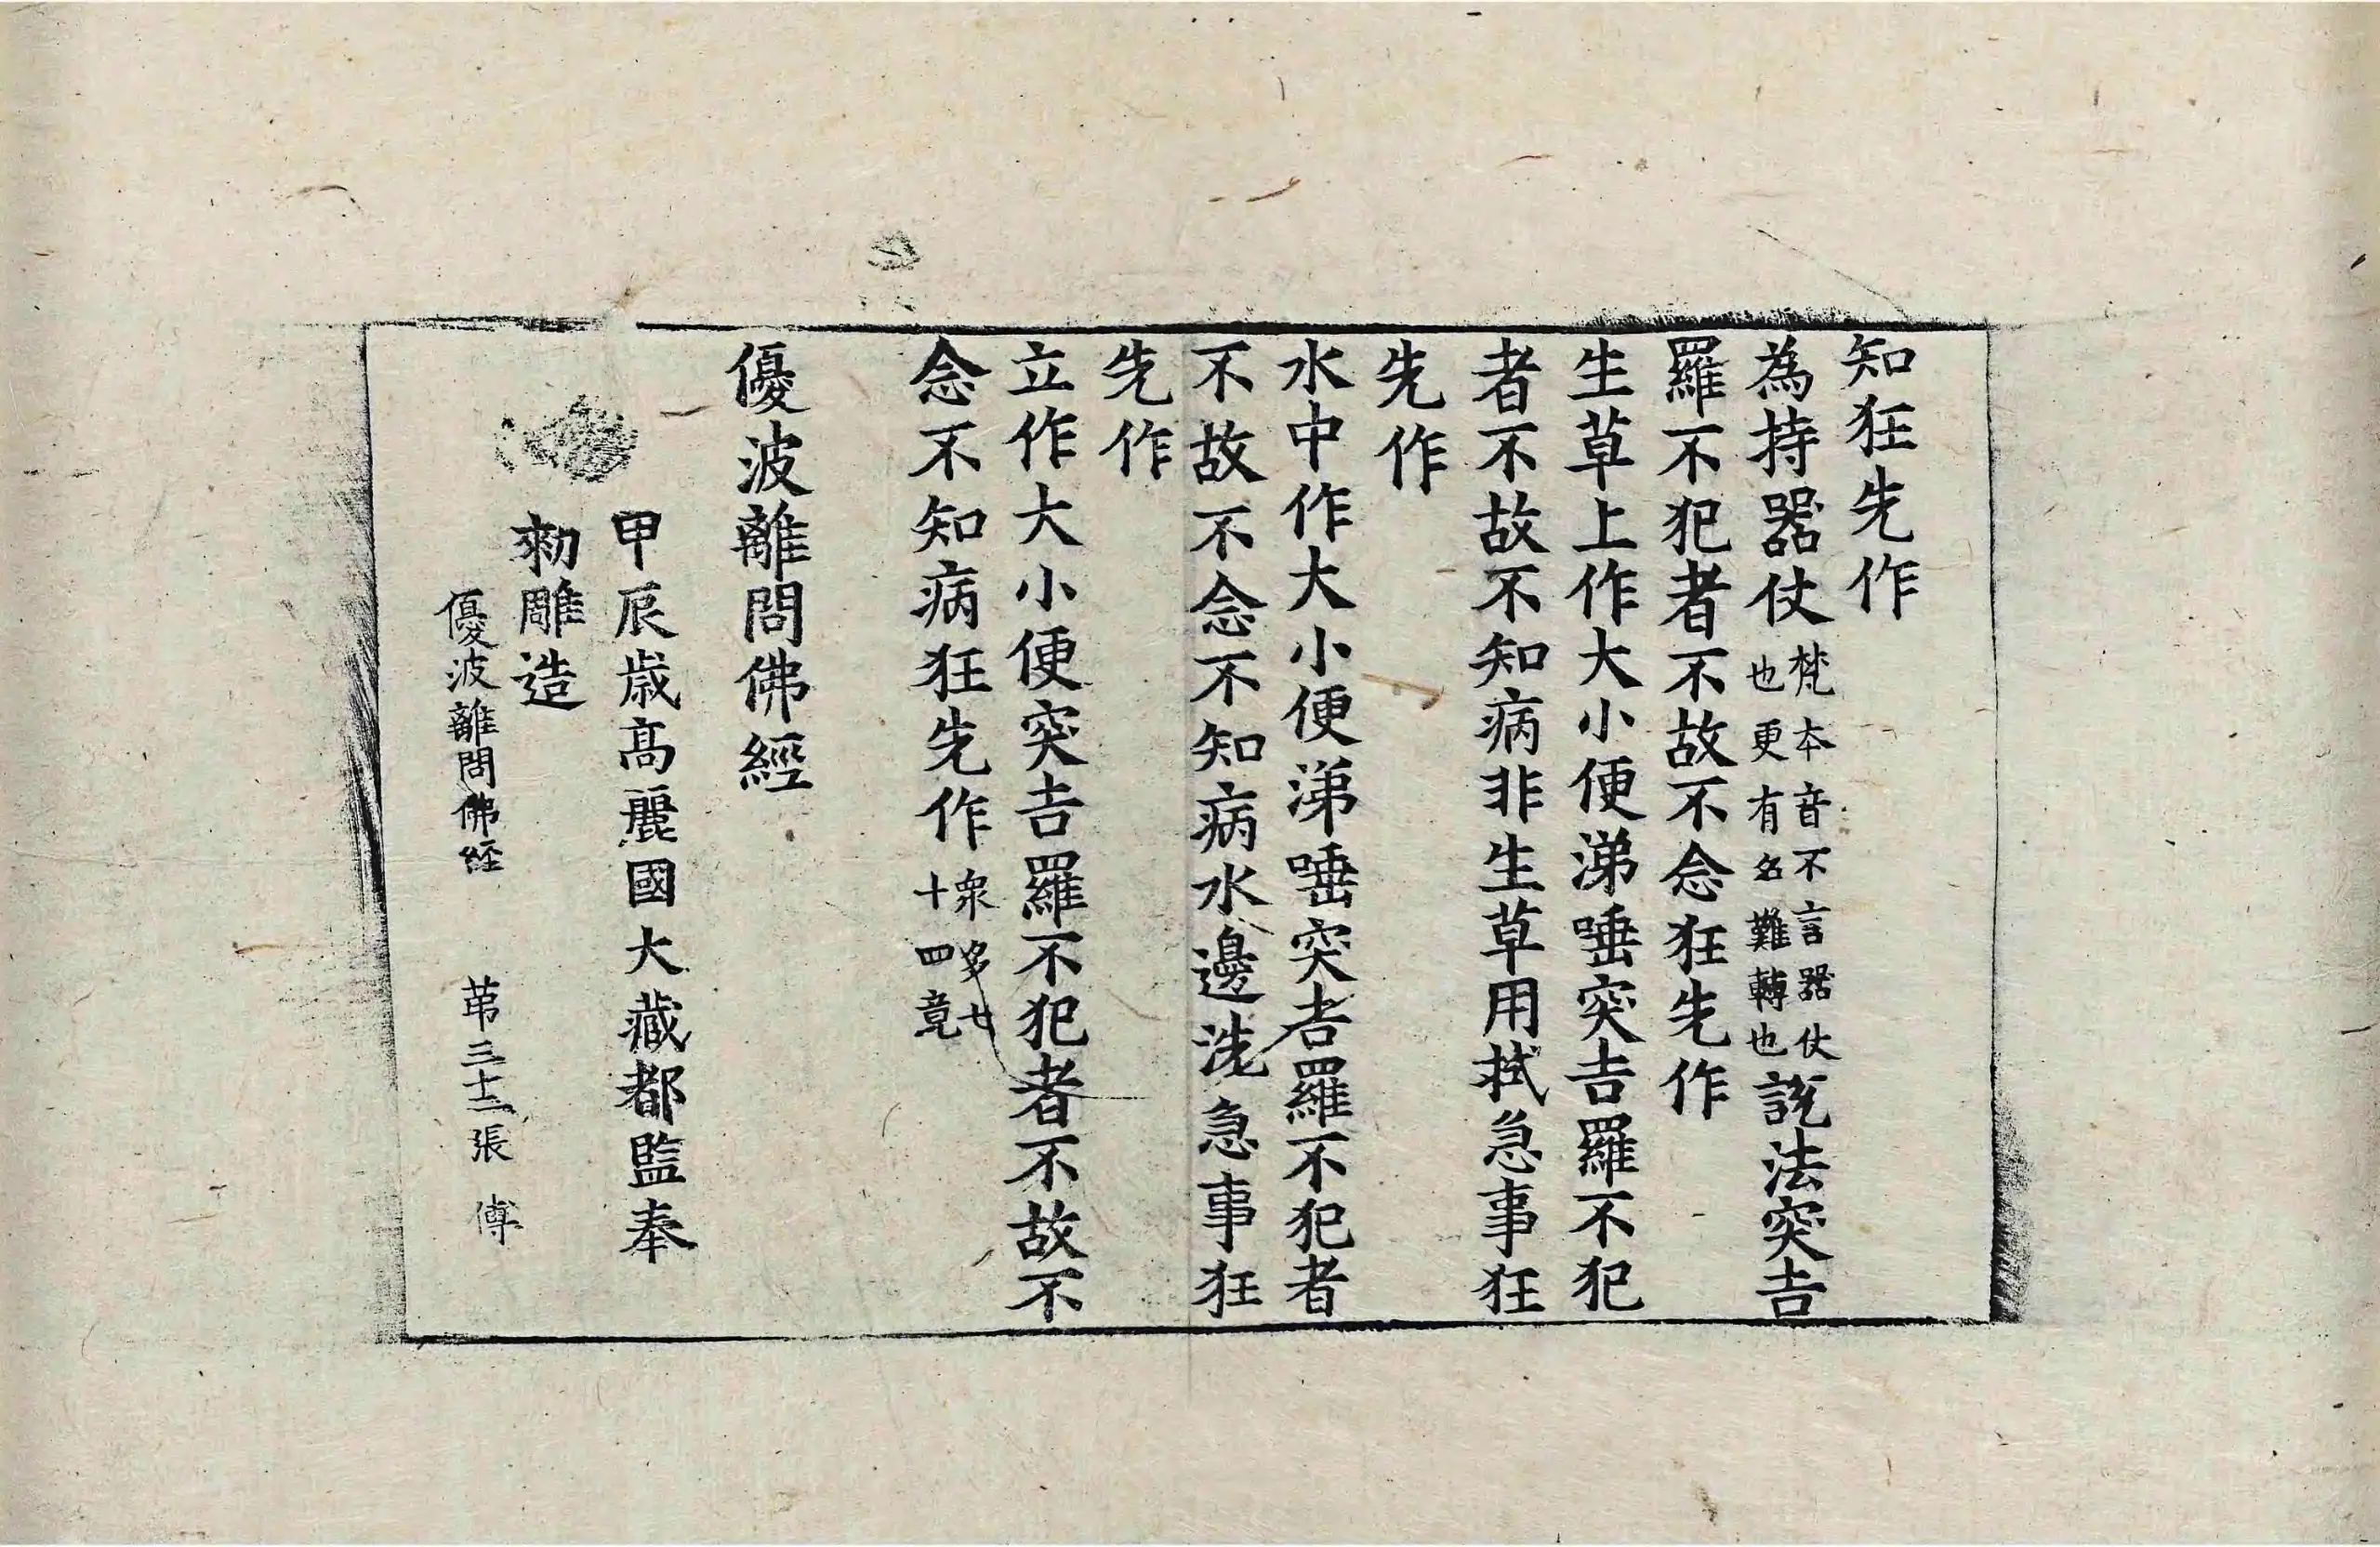 知狂先作
為持器仗梵本音不言器仗也更有名難轉也說法突吉
羅不犯者不故不念狂先作
生草上作大小便涕唾突吉羅不犯
者不故不知病非生草用拭急事狂
先作
水中作大小便涕唾突吉羅不犯者
不故不念不知病水邊洗急事狂
先作
立作大小便突吉羅不犯者不故不
念不知病狂先作衆多廿十四竟
優波離問佛經
甲辰歲高麗國大藏都監奉
勑雕造
優波離問佛経 苐三十二張 傅